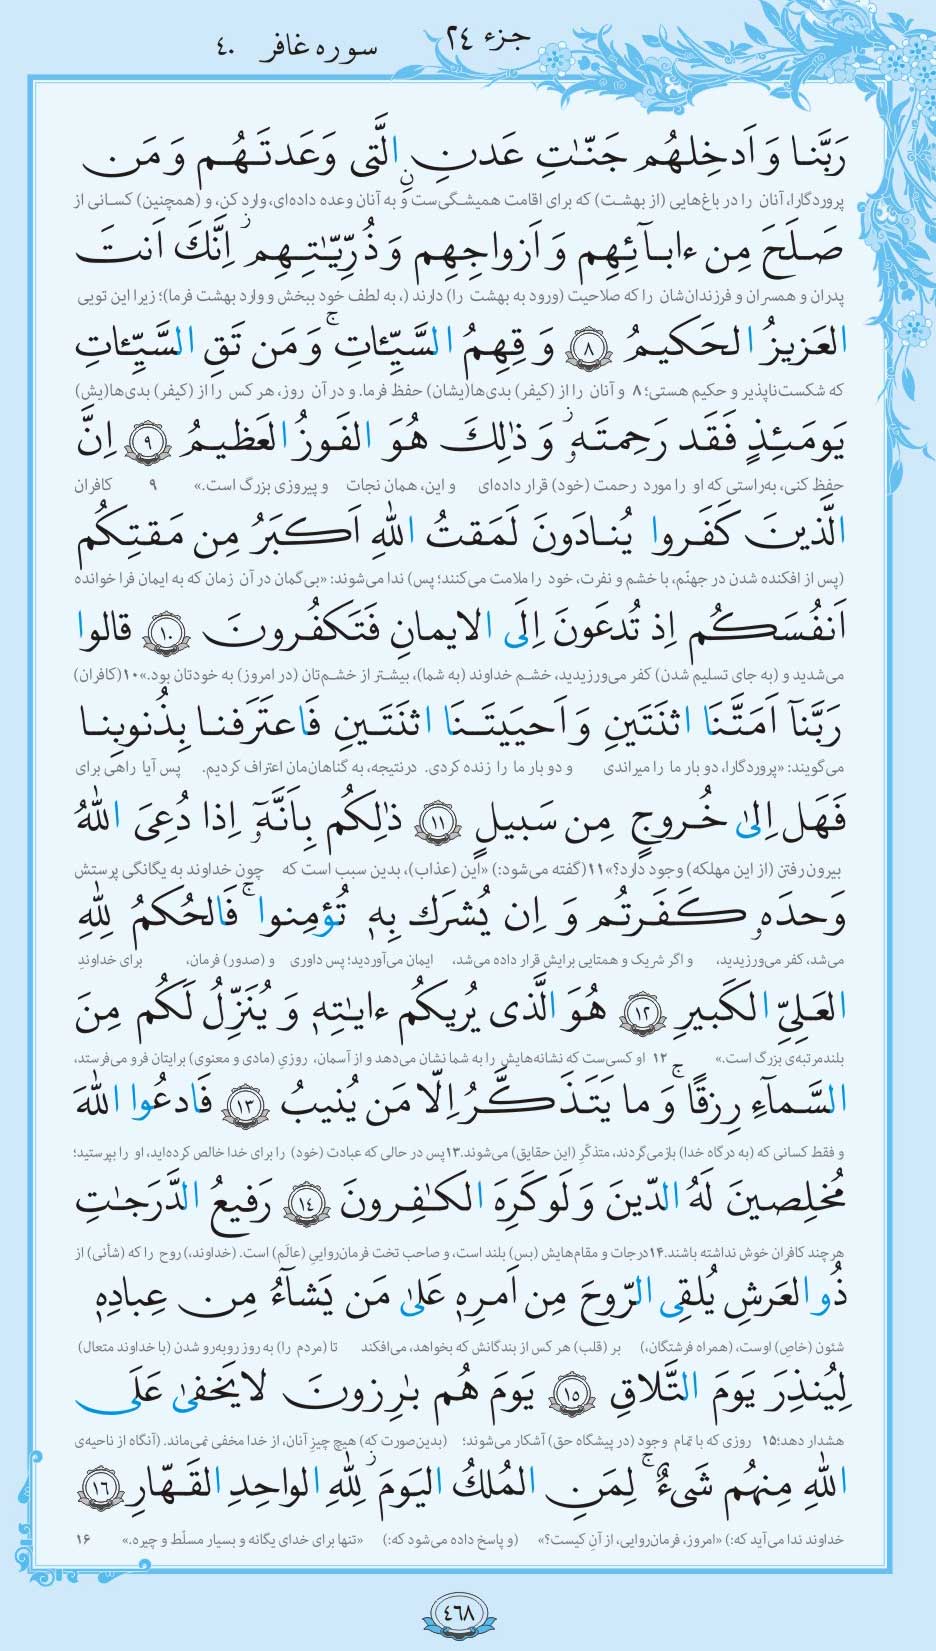 جزء ٢٤ سوره غافر ٤٠
رَبَّنا وَ اَدخِلهُم جَنّٰتِ عَدنٍ الَّتی وَعَدتَهُم وَ مَن
پروردگارا، آنان را در باغ‌هایی (از بهشت) که برای اقامت همیشگی‌ست و به آنان وعده داده‌ای، وارد کن، و (همچنین) کسانی از
صَلَحَ مِن ءابآئِهِم وَ اَزواجِهِم وَ ذُرِّیّٰتِهِم ۚ اِنَّکَ اَنتَ
پدران و همسران و فرزندان‌شان را که صلاحیت (ورود به بهشت را) دارند (، به لطف خود ببخش و وارد بهشت فرما)؛ زیرا این تویی
العَزیزُ الحَکیمُ ﴿٨﴾ وَ قِهِمُ السَّیِّئاتِ ۚ وَ مَن تَقِ السَّیِّئاتِ
که شکست‌ناپذیر و حکیم هستی؛ ٨ و آنان را از (کیفر) بدی‌ها(یشان) حفظ فرما. و در آن روز، هر کس را از (کیفر) بدی‌ها(یش)
یَومَئِذٍ فَقَد رَحِمتَهٗ ۚ وَ ذٰلِکَ هُوَ الفَوزُ العَظیمُ ﴿٩﴾ اِنَّ
حفظ کنی، به‌راستی که او را مورد رحمت (خود) قرار داده‌ای و این، همان نجات و پیروزی بزرگ است.» ٩ کافران
الَّذینَ کَفَروا یُنادَونَ لَمَقتُ اللهِ اَکبَرُ مِن مَقتِکُم
(پس از افکنده شدن در جهنّم، با خشم و نفرت، خود را ملامت می‌کنند؛ پس) ندا می‌شوند: «بی‌گمان در آن زمان که به ایمان فرا خوانده
اَنفُسَکُم اِذ تُدعَونَ اِلَی الایمانِ فَتَکفُرونَ ﴿١٠﴾ قالوا
می‌شدید و (به جای تسلیم شدن) کفر می‌ورزیدید، خشم خداوند (به شما)، بیشتر از خشم‌تان (در امروز) به خودتان بود.» ١٠ (کافران)
رَبَّنآ اَمَتَّنَا اثنَتَینِ وَ اَحیَیتَنَا اثنَتَینِ فَاعتَرَفنا بِذُنوبِنا
می‌گویند: «پروردگارا، دو بار ما را میراندی و دو بار ما را زنده کردی. درنتیجه، به گناهان‌مان اعتراف کردیم. پس آیا راهی برای
فَهَل اِلیٰ خُروجٍ مِن سَبیلٍ ﴿١١﴾ ذٰلِکُم بِاَنَّهٗٓ اِذا دُعِیَ اللهُ
بیرون رفتن (از این مهلکه) وجود دارد؟» ١١ (گفته می‌شود:) «این (عذاب)، بدین سبب است که چون خداوند به یگانگی پرستش
وَحدَهٗ کَفَرتُم وَ اِن یُشرَك بِهٖ تُؤمِنوا ۚ فَالحُکمُ لِلّٰهِ
می‌شد، کفر می‌ورزیدید، و اگر شریک و همتایی برایش قرار داده می‌شد، ایمان می‌آوردید؛ پس داوری و (صدور) فرمان، برای خداوندِ
العَلِیِّ الکَبیرِ ﴿١٢﴾ هُوَ الَّذی یُریکُم ءایٰتِهٖ وَ یُنَزِّلُ لَکُم مِنَ
بلندمرتبه‌ی بزرگ است.» ١٢ او کسی‌ست که نشانه‌هایش را به شما نشان می‌دهد و از آسمان، روزیِ (مادی و معنوی) برایتان فرو می‌فرستد،
السَّمآءِ رِزقًا ۚ وَ ما یَتَذَکَّرُ اِلّا مَن یُنیبُ ﴿١٣﴾ فَادعُوا اللهَ
و فقط کسانی که (به درگاه خدا) بازمی‌گردند، متذکّرِ (این حقایق) می‌شوند. ١٣ پس در حالی که عبادت (خود) را برای خدا خالص کرده‌اید، او را بپرستید؛
مُخلِصینَ لَهُ الدّینَ وَ لَو کَرِهَ الکٰفِرونَ ﴿١٤﴾ رَفیعُ الدَّرَجٰتِ
هرچند کافران خوش نداشته باشند. ١٤ درجات و مقام‌هایش (بس) بلند است، و صاحب تخت فرمان‌رواییِ (عالَم) است. (خداوند،) روح را که (شأنی) از
ذُو العَرشِ یُلقِی الرّوحَ مِن اَمرِهٖ عَلیٰ مَن یَشآءُ مِن عِبادِهٖ
شئون (خاصِ) اوست، (همراه فرشتگان،) بر (قلب) هر کس از بندگانش که بخواهد، می‌افکند تا (مردم را) به روز روبه‌رو شدن (با خداوند متعال)
لِیُنذِرَ یَومَ التَّلاقِ ﴿١٥﴾ یَومَ هُم بٰرِزونَ لا یَخفیٰ عَلَی
هشدار دهد؛ ١٥ روزی که با تمام وجود (در پیشگاه حق) آشکار می‌شوند؛ (بدین‌صورت که) هیچ چیزِ آنان، از خدا مخفی نمی‌ماند. (آنگاه از ناحیه‌ی
اللهِ مِنهُم شَیءٌ ۚ لِمَنِ المُلكُ الیَومَ ۖ لِلّٰهِ الواحِدِ القَهّارِ ﴿١٦﴾
خداوند ندا می‌آید که:) «امروز، فرمان‌روایی، از آنِ کیست؟» (و پاسخ داده می‌شود که:) «تنها برای خدای یگانه و بسیار مسلّط و چیره.» ١٦
٤٦٨